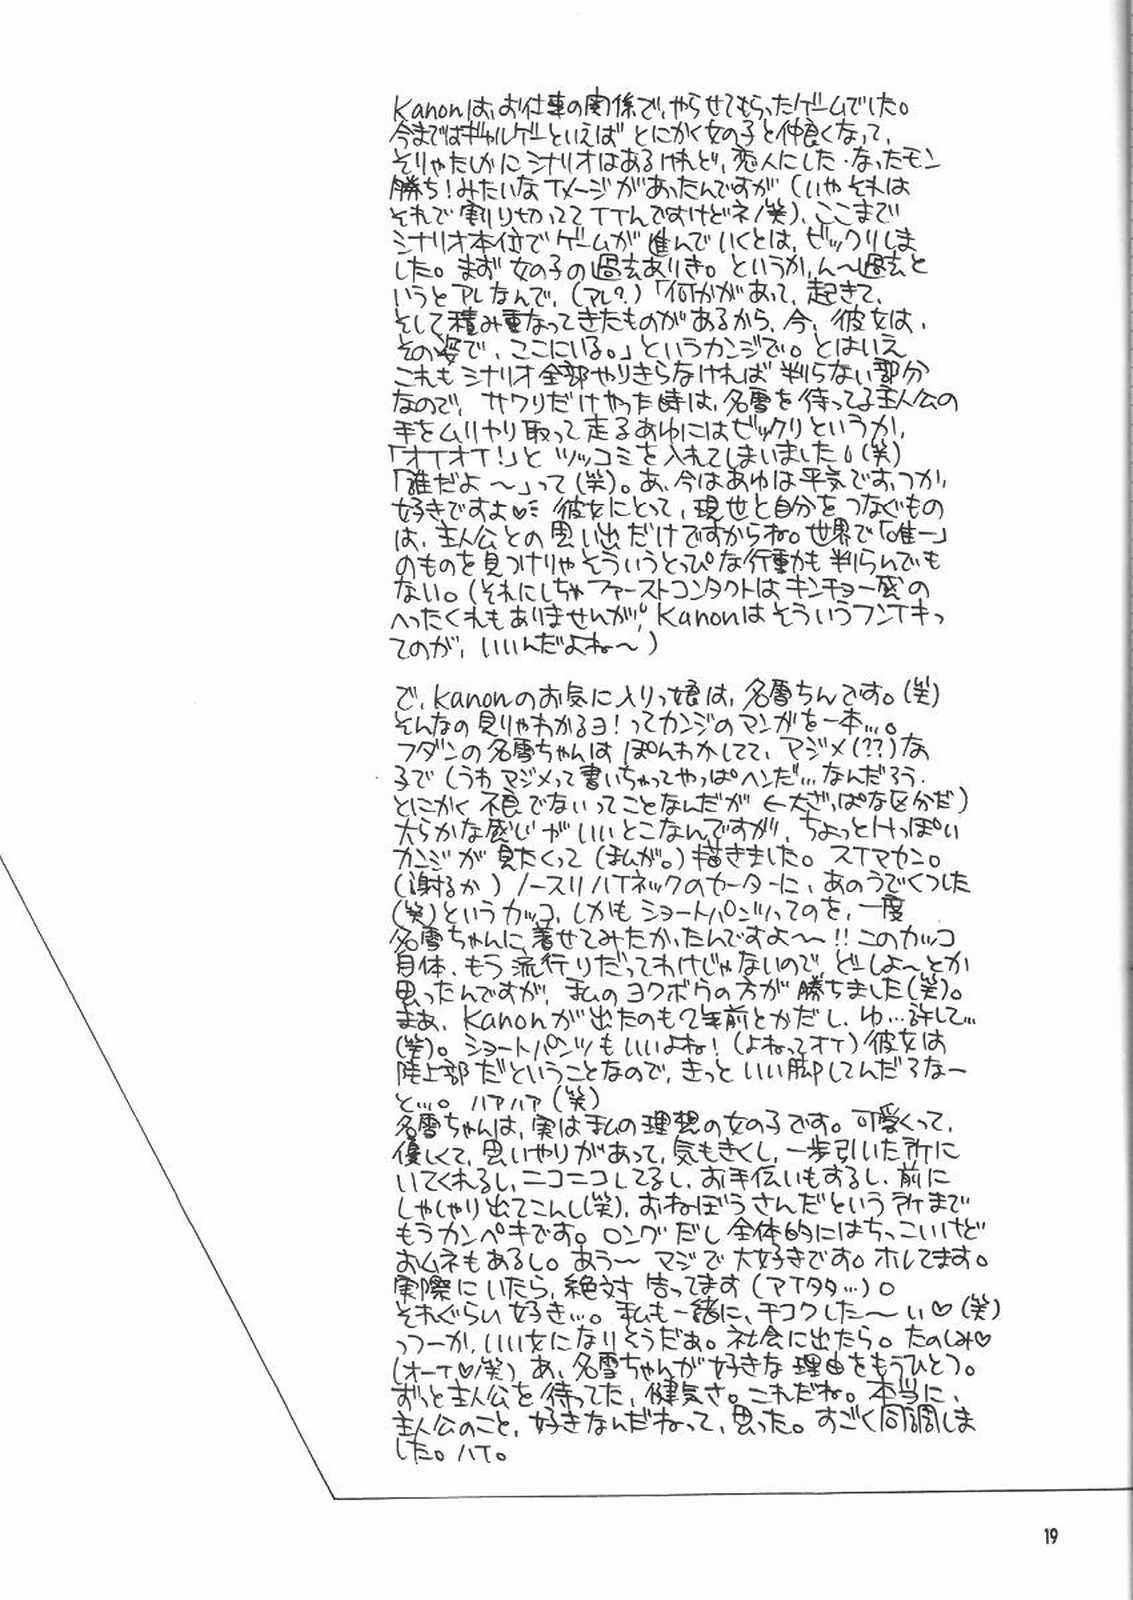 Kanonは、お仕事の関係で、やらせてもらったゲームでした。
今まではギャルゲーといえば とにかく女の子と仲良くなって、
そりゃたしかに シナリオはあるけれど、恋人にした・なったモン
勝ち！みたいなイメージがあったんですが（いやそれは
それで 割り切っててイイんですけどネ/笑）、ここまで
シナリオ本位でゲームが 進んでいくとは、ビックリしま
した。まず 女の子の過去ありき。というか、ん〜過去と
いうとアレなんで、（アレ？）「何かがあって、起きて、
そして積み重なってきたものがあるから、今、彼女は、
その姿で、ここにいる。」というカンジで。とはいえ
これも シナリオ全部やりきらなければ 判らない部分
なので、サワリだけやった時は、名雪を待ってる主人公の
手をムリヤリ取って 走るあゆにはビックリというか、
「オイオイ！」と ツッコミを入れてしまいました。（笑）
「誰だよ 〜」って（笑）。あ、今はあゆは平気です、つか、
好きですよ♡ 彼女にとって、現世と自分をつなぐもの
は、主人公との思い出だけですからね。世界で「唯一」
のものを見つけりゃそういうとっぴな行動も判らんでも
ない。（それにしちゃファーストコンタクトはキンチョー感の
へったくれもありませんが、Kanonはそういうフンイキっ
てのが、いいんだよね〜）

で、Kanonのお気に入りっ娘は、名雪ちんです。（笑）
そんなの見りゃわかるヨ！ってカンジのマンガを一本…。
フダンの名雪ちゃんは ぽんわかしてて、マジメ（??）な
子で（うわマジメって書いちゃってやっぱヘンだ…なんだろう、
とにかく 不良でないってことなんだが ←大ざっぱな区分だ）
大らかな感じがいいとこなんですが、ちょっとHっぽい
カンジが見たくって（まんが。）描きました。スイマセン。
（謝るか）ノースリハイネックのセーターに、あのうでくつした
（笑）というカッコ、しかもショートパンツってのを、一度
名雪ちゃんに、着せてみたかったんですよ〜!!このカッコ
自体、もう流行りだってわけじゃないので、どーしよ〜とか
思ったんですが、私のヨクボウの方が 勝ちました（笑）。
まぁ、Kanonが出たのも2年前とかだし、ゆ…許して…
（笑）。ショートパンツもいいよね！（よねってオイ）彼女は
陸上部だということなので、きっと いい脚してんだろなー
と…。ハァハァ（笑）
名雪ちゃんは、実は私の理想の女の子です。可愛くって、
優しくて、思いやりがあって、気もきくし、一歩引いた所に
いてくれるし、ニコニコしてるし、お手伝いもするし、前に
しゃしゃり出てこんし（笑）、おねぼうさんだという所まで
もうカンペキです。ロングだし 全体的にはちっこいけど
おムネもあるし。あう〜 マジで 大好きです。ホレてます。
実際にいたら、絶対 告ってます（アイタタ…）。
それぐらい好き…。私も一緒に、チコクした〜い♡（笑）
っつーか、いい女になりそうだぁ。社会に出たら。たのしみ♡
（オーイ♡/笑）あ、名雪ちゃんが好きな 理由をもうひとつ。
ずっと主人公を待ってた、健気さ。これだね。本当に、
主人公のこと、好きなんだねって、思った。すごく同調しま
した。ハイ。

19